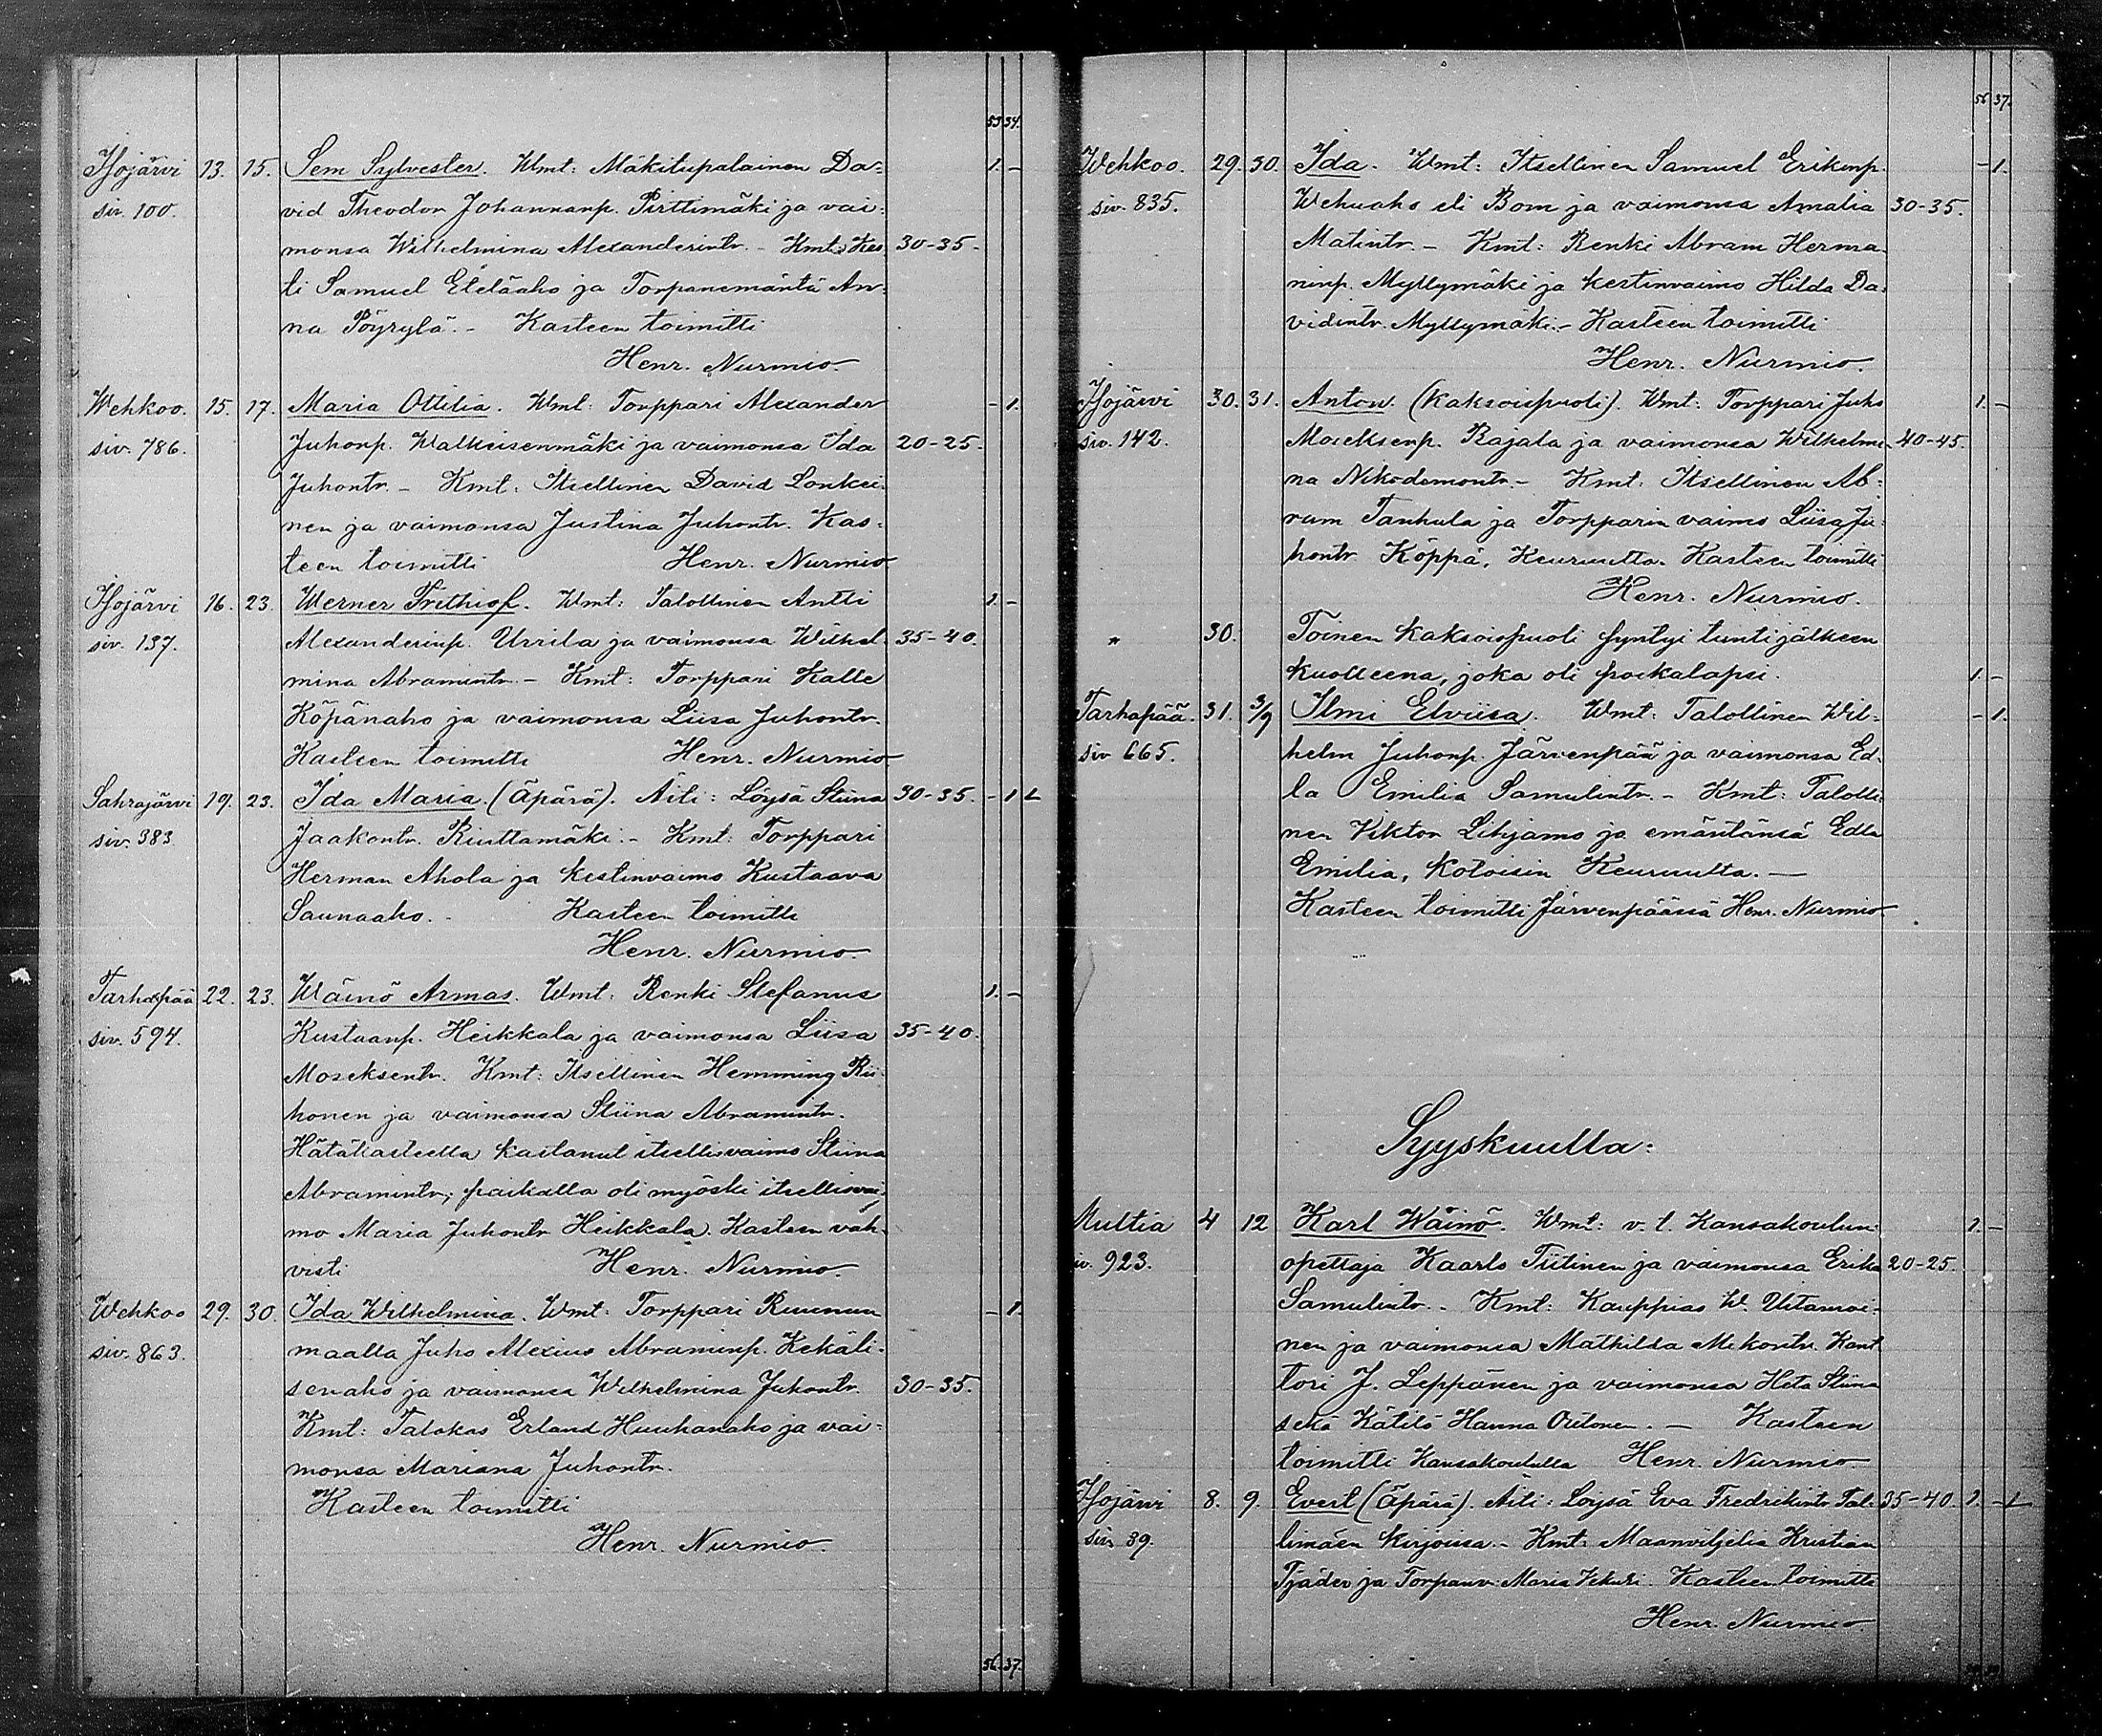 53 34.
Isojärvi 13. 15. Sem Sylvester. Wmt: Mäkitupalainen Da- 1. -
siv. 100. vid Theodor Johannanp. Pirttimäki ja vai-
monsa Wilhelmina Alexanderintr. - Kmt: Kes 30-35.
ti Samuel Eteläaho ja Torpanemäntä An-
na Pöyrylä. - Kasteen toimitti
Henr. Nurmio.
Wehkoo. 15. 17. Maria Ottilia. Wmt: Torppari Alexander - 1.
siv. 786. Juhonp. Walkeisenmäki ja vaimonsa Ida 20-25.
Juhontr. - Kmt: Itsellinen David Lonkei-
nen ja vaimonsa Justina Juhontr. Kas-
teen toimitti Henr. Nurmio
Isojärvi 16. 23. Werner Frithiof. Wmt: Talollinen Antti 1. -
siv. 137. Alexanderinp. Urrila ja vaimonsa Wilhel- 35-40.
mina Abramintr. - Kmt: Torppari Kalle
Köpänaho ja vaimonsa Liisa Juhontr.
Kasteen toimitti Henr. Nurmio
Sahrajärvi 19. 23. Ida Maria. (Äpärä). Äiti: Löysä Stiina 30-35. - 1 L
siv. 383 Jaakontr. Riuttamäki. - Kmt: Torppari
Herman Ahola ja kestinvaimo Kustaava
Saunaaho. - Kasteen toimitti
Henr. Nurmio.
Tarhapää 22. 23. Wäinö Armas. Wmt: Renki Stefanus 1. -
siv. 594. Kustaanp. Heikkala ja vaimonsa Liisa 35-40.
Moseksentr. Kmt: Itsellinen Hemming Rii-
honen ja vaimonsa Stiina Abramintr.
Hätäkasteella kastanut itsellisvaimo Stiina
Abramintr; paikalla oli myöski itsellisvai-
mo Maria Juhontr Heikkala. Kasteen vah-
visti Henr. Nurmio.
Wehkoo 29. 30. Ida Wilhelmina. Wmt: Torppari Ruunun - 1.
siv. 863. maalta Juho Alexius Abraminp. Kekäli-
senaho ja vaimonsa Wilhelmina Juhontr. 30-35.
Kmt: Talokas Erland Huuhanaho ja vai-
monsa Mariana Juhontr.
Kasteen toimitti
Henr. Nurmio.
56. 37.
56 37.
Wehkoo. 29. 30. Ida. Wmt: Itsellinen Samuel Erikinp. - 1.
siv. 835. Wehuaho eli Bom ja vaimonsa Amalia 30-35.
Matintr. - Kmt: Renki Abram Herma-
ninp. Myllymäki ja kestinvaimo Hilda Da-
vidintr. Myllymäki. - Kasteen toimitti
Henr. Nurmio.
Isojärvi 30. 31. Anton. (kaksoispuoli). Wmt: Torppari Juho 1. -
siv. 142. Moseksenp. Rajala ja vaimonsa Wilhelmi- 40-45.
na Nikodemontr. - Kmt: Itsellinen Ab-
ram Tanhula ja Torpparin vaimo Liisa Ju-
hontr Köppä, Keuruulta. Kasteen toimitti
Henr. Nurmio.
" 30. Toinen kaksoispuoli syntyi tunti jälkeen
kuolleena, joka oli poikalapsi. 1. -
Tarhapää. 31. 3/9 Ilmi Elviisa. Wmt: Talollinen Wil- - 1.
siv 665. helm Juhonp. Järvenpää ja vaimonsa Ed-
la Emilia Samulintr. - Kmt: Talolli-
nen Viktor Lihjamo ja emäntänsä Edla
Emilia, kotoisin Keuruulta. -
Kasteen toimitti Järvenpäässä Henr. Nurmio.
Syyskuulla:
Multia 4 12 Karl Wäinö. Wmt: v. t. Kansakoulun- 1. -
iv. 923. opettaja Kaarlo Tiitinen ja vaimonsa Erika 20-25.
Samulintr. - Kmt: Kauppias W.
nen ja vaimonsa Mathilda Mikontr. Kant
tori J. Leppänen ja vaimonsa Heta Stiina
sekä Kätilö Hanna - Kasteen
toimitti Kansakoululla Henr. Nurmio.
Isojärvi 8. 9. Evert (Äpärä). Äiti: Löysä Eva Fredrikintr Tal- 35-40. 1. - L
siv 39. limäen kirjoissa. - Kmt: Maanviljeliä Kristian
Tjäder ja Torpanv: Maria Vekuri. Kasteen toimitti
Henr. Nurmio.